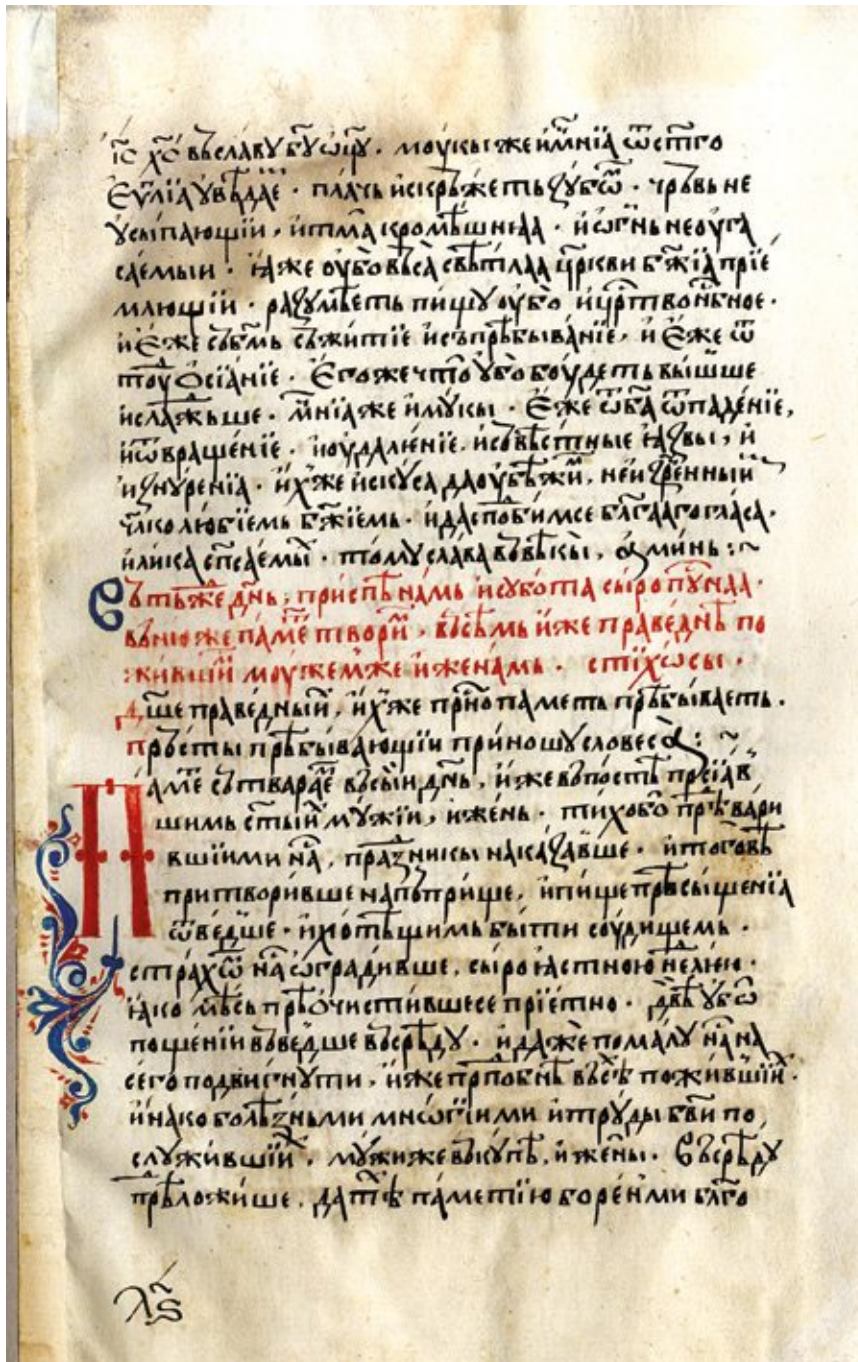 і҃с х҃с въ славу б҃гу ѡ҃цу · моукы же и҆мнїѧ ѿ ст҃го
є҆ѵ҃лїа увѣдае · плачь и҆ скрьжеть ꙁубѡ · чрьвь не
усыпающїи · и҆ тма кромѣшнѣа · и҆ ѻгнь не оуга
саемыи · ꙗже оубо въса свѣтлаа цр҃кви б҃жїа прїе
млющїи · раꙁумѣеть пищу оубо и҆ цр҃тво нб҃ное ·
и҆ є҆же съ б҃гмь съжитїе и҆ съпрѣбыванїе · и҆ є҆же ѿ
тоуѻсїанїе · є҆гоже что убо боудеть вышше
и҆ слажьше · мнїа же и҆ мукы · є҆же ѿ б҃а ѿпаденїе,
и҆ ѿвращенїе · и҆ оудаленїе · и҆ съвѣстные ꙗꙁвы, и҆
иꙁнуренїа · и҆хже искуса да оубѣжи, неиꙁренный
чл҃колюбїемь б҃жїемь · и҆ да спобимсе бл҃гааго гласа ·
и҆ лика сп҃саемы · тому слава въ вѣкы, аминь :~
Въ тъже дн҃ь, приспѣ намь и҆ субота сыропунаа ·
въ нюже паме твори, въсѣмь иже праведнѣ по
живший моужемже и҆ женамь · стїхѡсы ·
Дш҃е праведный, и҆хже прно паметь прѣбываеть ·
Пръсты прѣбывающїи приношу словеса :~
Паме сътварае въ сьи дн҃ь, и҆же въ постѣ просїав
шимь ст҃ый мужїи, и҆ жень · тихо бо прѣвари
вшїими на, праꙁникы накаꙁавше · и҆ тоговѣ
притворивше на пъприще, и҆ пище прѣсыщенїа
ѿведше · и҆ хотѣщимь быти соудищемь ·
страхѡ на ѡградивше, сыроꙗстною нелею ·
ꙗко мѣсь прѣѻчистившесе прїетно · двѣ убѡ
пощенїи въведше въ срѣду · и҆ даже помалу на на
сего подвигнути, и҆же прпобнѣ въсѣ поживший ·
и҆нако болѣꙁньми мнѡгїими и҆ труды б҃ви по
служивший, мужиже въкупѣ, и҆ жены · Въ срѣду
прѣложише, да тѣ паметїю бореньми бл҃го
л҃ѕ